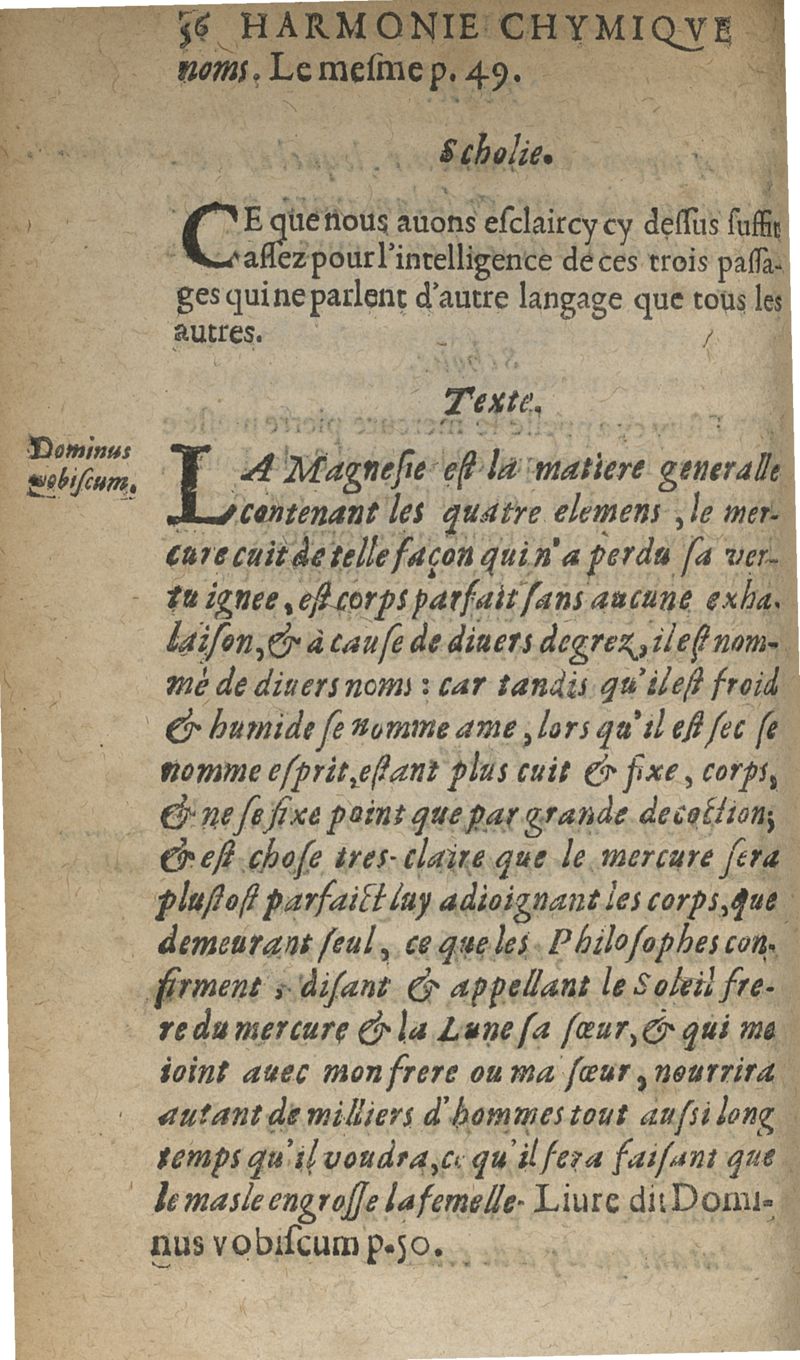 56 HARMONIE CHYMIQVE
noms. Le meſme p. 49.
Scholie.
CE que nous auons eſclaircy cy deſſus ſuffit
aſſez pour l'intelligence de ces trois paſſa-
ges qui ne parlent d'autre langage que tous les
autres.
Texte.
Dominus
vobiſcum.
LA Magneſie eſt la matiere generalle
contenant les quatre elemens, le mer-
cure cuit de telle façon qui n'a perdu ſa ver-
tu ignee, eſt corps parfait ſans aucune exha-
laiſon, & à cauſe de diuers degrez, il eſt nom-
mè de diuers noms : car tandis qu'il eſt froid
& humide ſe nomme ame, lors qu'il eſt ſec ſe
nomme eſprit, eſtant plus cuit & fixe, corps,
& ne ſe fixe point que par grande decoction;
& eſt choſe tres-claire que le mercure ſera
pluſtoſt parfaict luy adioignant les corps, que
demeurant ſeul, ce que les Philoſophes con-
firment, diſant & appellant le Soleil fre-
re du mercure & la Lune ſa ſœur, & qui me
ioint auec mon frere ou ma ſœur, nourrira
autant de milliers d'hommes tout auſsi long
temps qu'il voudra, ce qu'il fera faiſant que
le masle engroſſe la femelle. Liure dit Domi-
nus vobiſcum p.50.